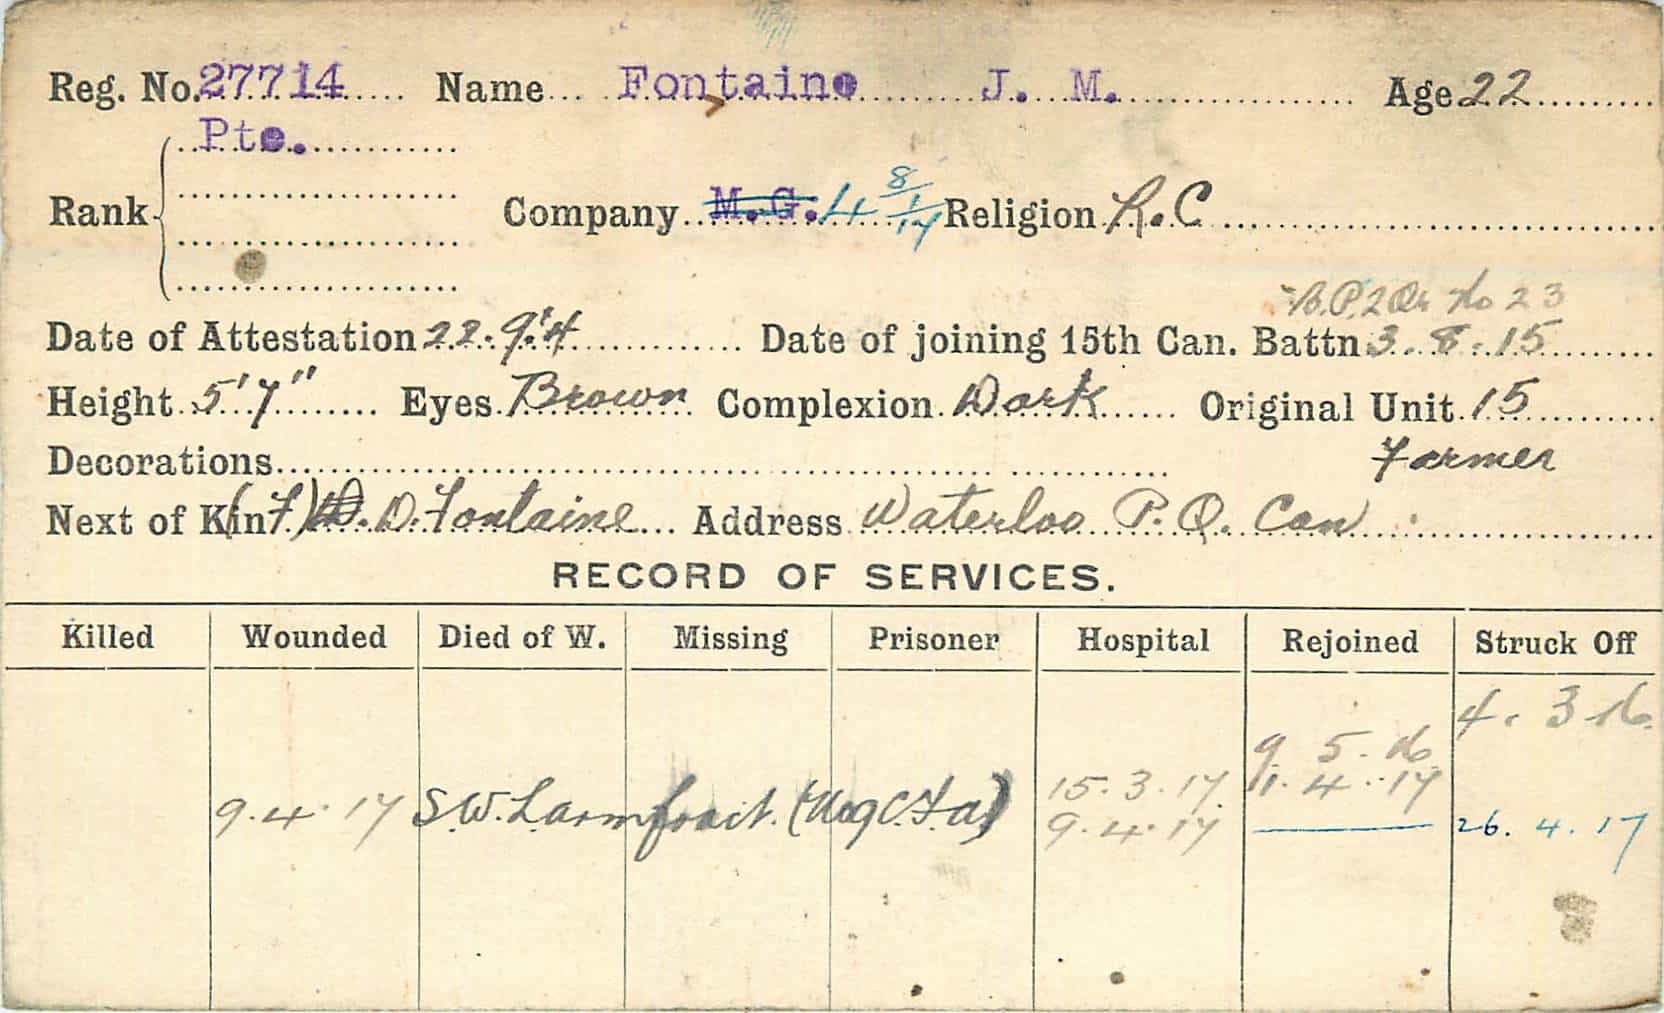 Reg. No. 27714 Name Fontaine J. M. Age 22
Pte.
Rank Company M. G. 4 8/1/17 Religion R.C
B.P.2 Or No 23
Date of Attestation 22.9.'14 Date of joining 15th Can. Battn 3.8.15
Height 5'7" Eyes Brown Complexion Dark Original Unit 15
Decorations Farmer
Next of Kin (F) D. Fontaine Address Waterloo P.Q. Can
RECORD OF SERVICES.
Killed Wounded Died of W. Missing Prisoner Hospital Rejoined Struck Off
4. 3 16
9 5. 16
15. 3. 17 11. 4. 17
9. 4. 17 S.W. L. arm fract. 9. 4. 17 26. 4. 17